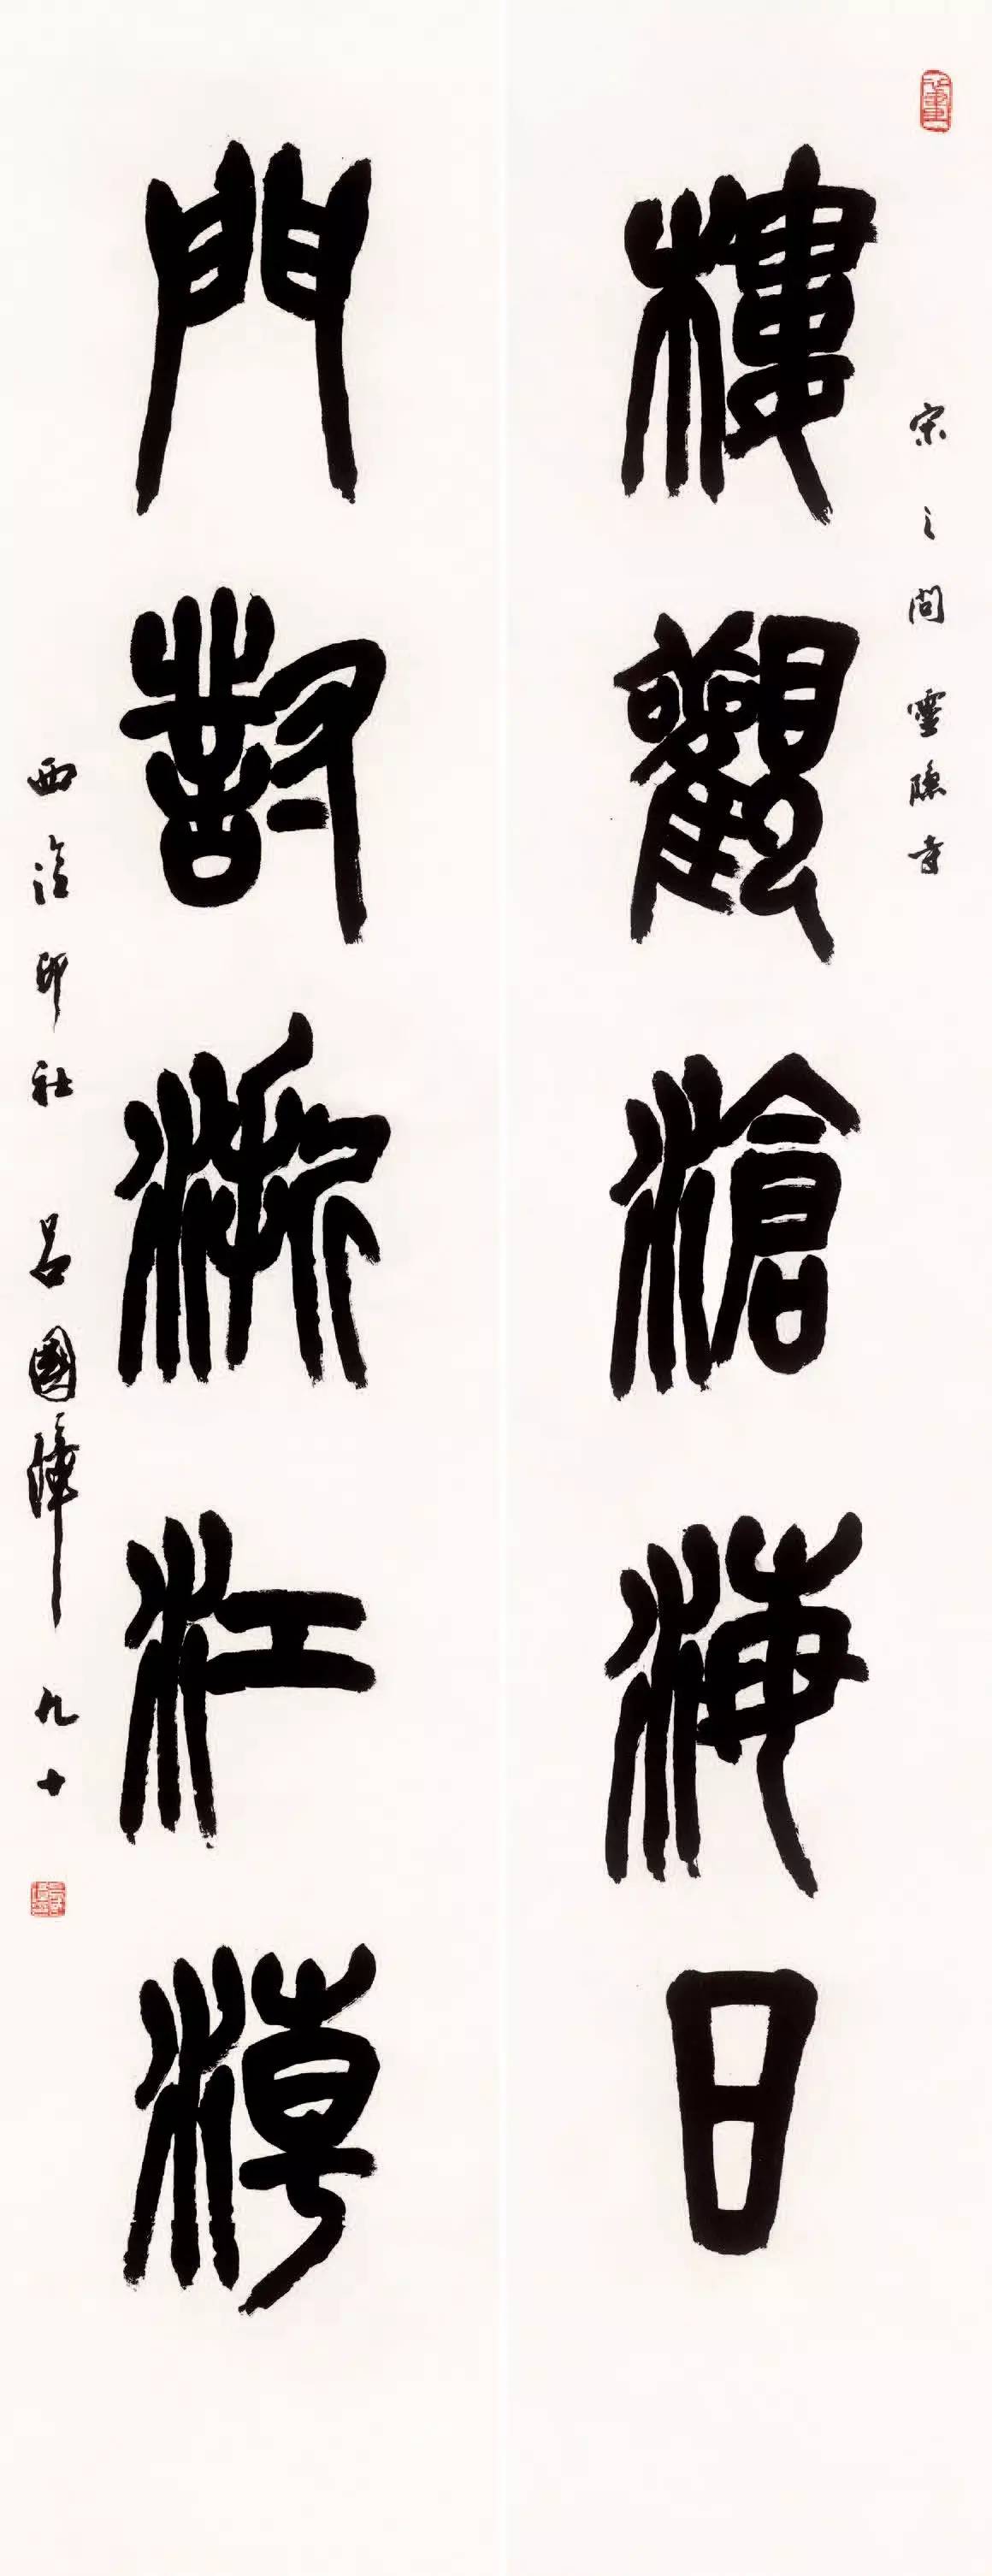 樓觀滄海日
宋之問靈隱寺
門對浙江潮
西泠印社 呂國璋 九十